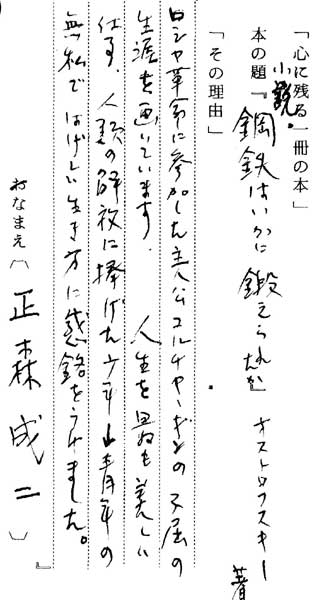 「心に残る一冊の本」
小説・
本の題『鋼鉄はいかに鍛えられたか』オストロフスキー著
「その理由」
ロシヤ革命に参加した主人公コルチャーギンの不屈の
生涯を画いています。人生を最も美しい
仕事、人類の解放に捧げた少年、青年の
無私ではげしい生き方に感銘をうけました。
おなまえ（正森成二）』